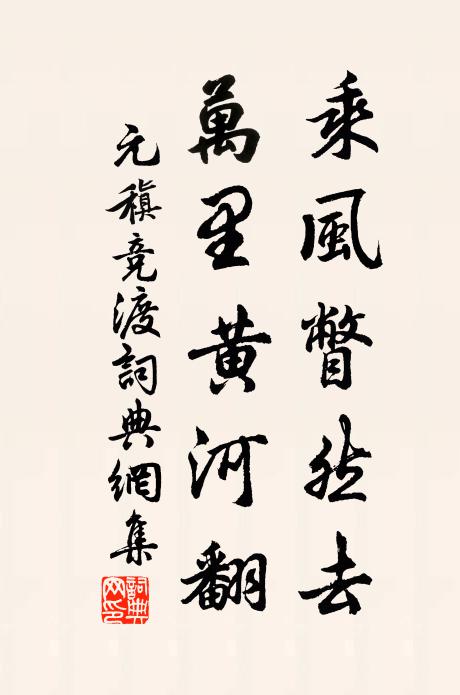 乘風瞥然去
萬里黃河翻
元稹競渡詞典網集
詞典網印